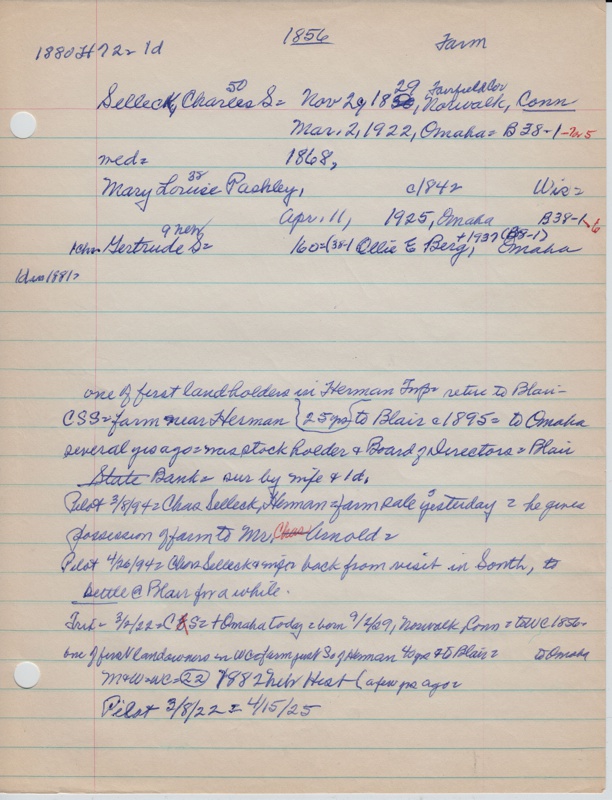 1856
1880 H 72 = 1d Farm
50 29 Fairfield Co
Selleck, Charles S = Nov 29 18, Norwalk, Conn
Mar. 2, 1922, Omaha = B38-1-Nr 5
med = 1868,
38
Mary Louise Pashley, c1842 Wis =
Apr. 11, 1925, Omaha B38-1-6
9 new +1937 (B8-1)
1chn Gertrude S = 160 = (38-1 Ollie E Berg, Omaha
1d in 1881 >
one of first landholders in Herman Twp = retire to Blair -
CSS = farm near Herman {25 yrs} to Blair c1895 = to Omaha
several yrs ago = was stock holder & Board of Directors = Blair
State Bank = sur by wife & 1d.
Pilot 3/8/94 = Chas Selleck, Herman = farm sale yesterday = he gives
possession of farm to Mr. Chas Arnold =
Pilot 4/26/94 = Chas Selleck & wife back from visit in South, to
settle @ Blair for a while.
Trib = 3/2/22 = CSS = + Omaha today = born 9/2/29, Norwalk Conn = to WC 1856 -
one of first landowners in WC = farm just So of Herman 40 yrs & to Blair = to Omaha
M & W = WC = 22 1882 Neb Hist (a few yrs ago =
Pilot 3/8/22 = 4/15/25